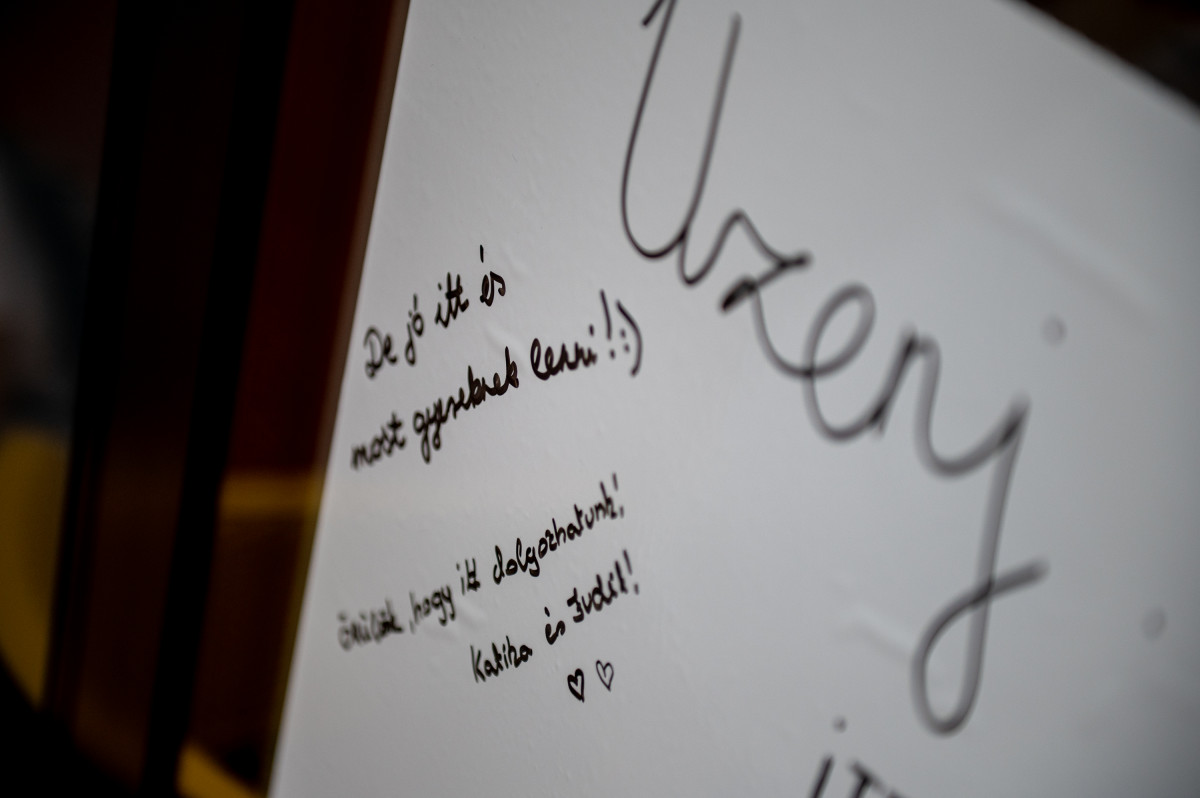 Üzenj
De jó itt és
most gyereknek lenni! :)
Örülök, hogy itt dolgozhatunk!
Katika és Judit!
♡ ♡